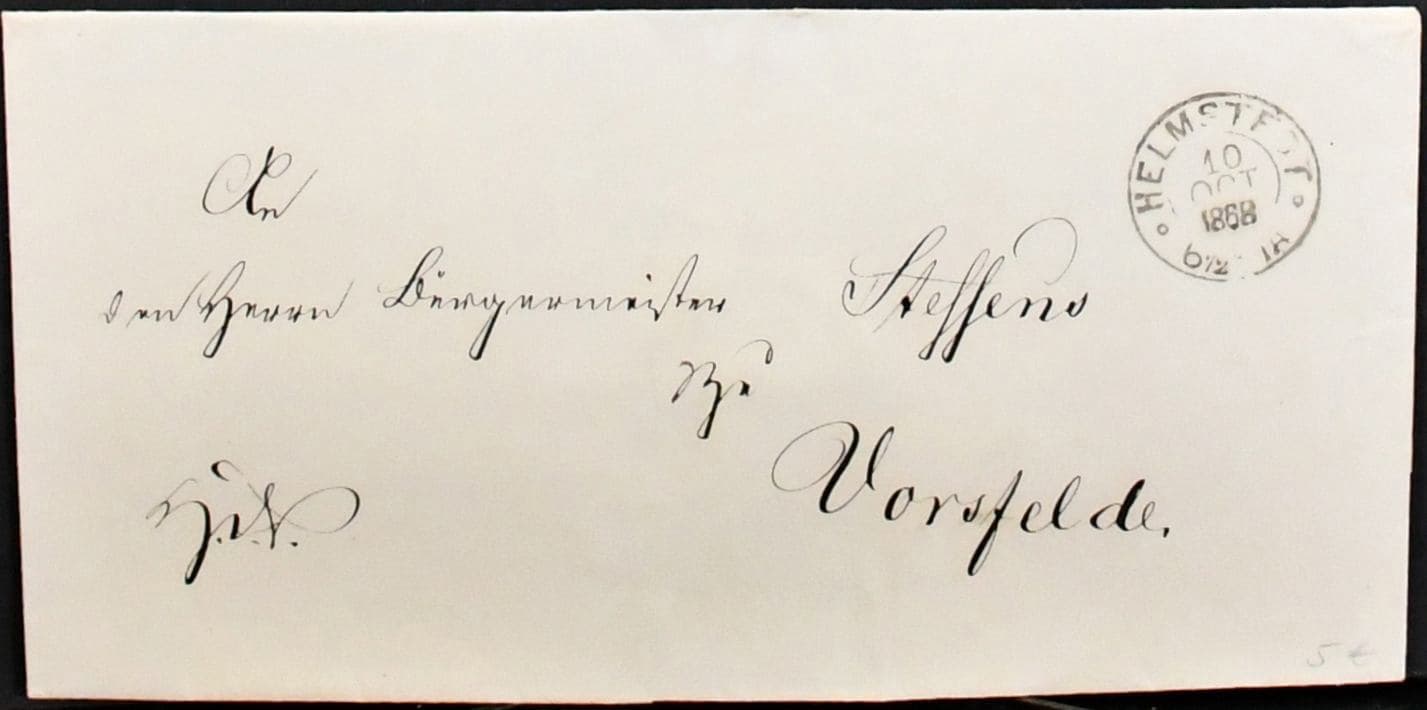 An
den Herrn Bürgermeister Steffens
zu
Vorsfelde.
HELMSTEDT
10
OCT
1868
5 €